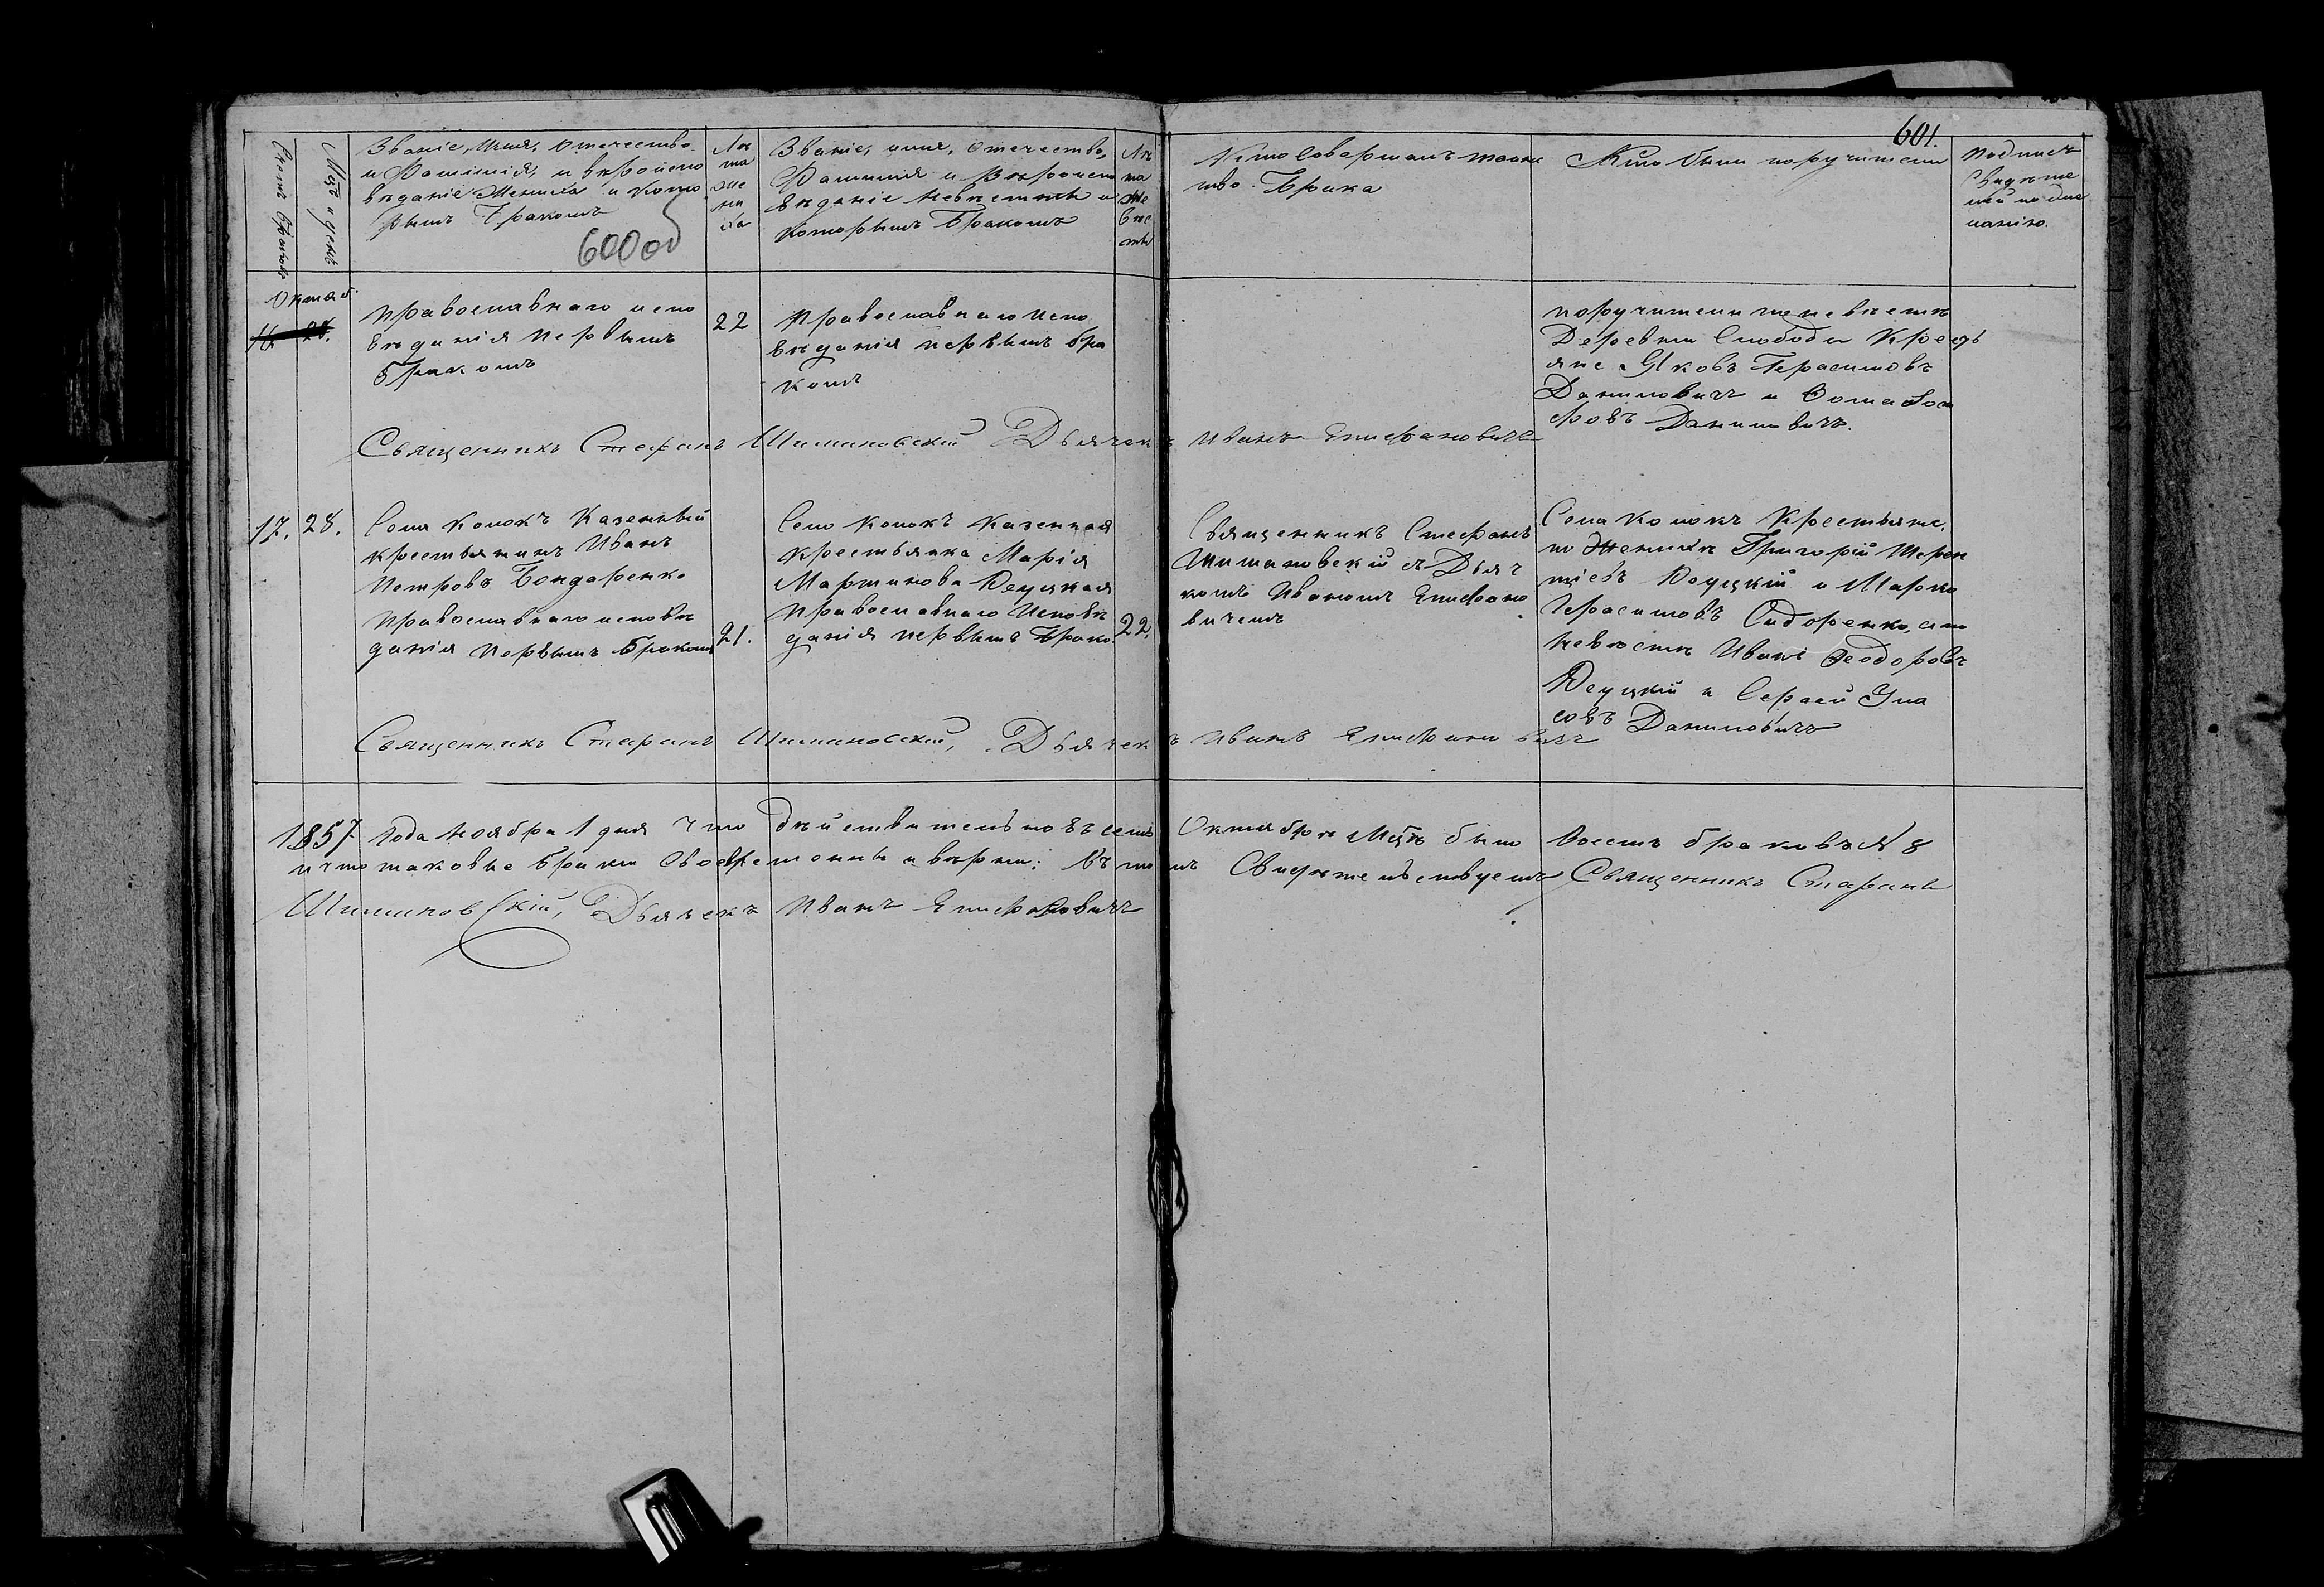 601.
Счетъ браковъ
Мцъ и день
Званіе, имя, отечество
и Фамилія, и вѣроиспо
вѣданіе жениха и кото
рымъ бракомъ
600 об
Лѣ
та
же
ни
ха
Званіе, имя, отечество,
Фамилія и вѣроиспо
вѣданіе невѣсты и
которымъ бракомъ
Лѣ
та
не
вѣс
ты
Кто совершалъ таин
ство брака
Кто были поручители
подпись
свидѣте
лей по же
ланію.
Октяб.
16 28.
православнаго испо
вѣданія первымъ
бракомъ
22
Православнаго испо
вѣданія первымъ бра
комъ
поручители по невѣстѣ
Деревни Слободы Кресть
яне Яковъ Герасимовъ
Даниловичъ и Фома
Даниловичъ.
Священникъ Стефанъ Шимановскій Дьячекъ Иванъ Епифановичъ
17. 28.
Села Колокъ Казенный
крестьянинъ Иванъ
Петровъ Бондаренко
православнаго исповѣ
данія первымъ бракомъ
21.
Села Колокъ казенная
крестьянка Марія
Мартинова Реуцкая
православнаго исповѣ
данія первымъ брако.
22.
Священникъ Стефанъ
Шимановскій съ Дьяч
комъ Иваномъ Епифано
вичемъ
Села Колокъ Крестьяне,
по женихѣ Григорій Терен
тіевъ Реуцкій и Марко
Герасимовъ Сидоренко, а по
невѣстѣ Иванъ Феодоровъ
Реуцкій и Сергей Ула
совъ Даниловичъ
Священникъ Стефанъ Шимановскій, Дьячекъ Иванъ Епифановичъ
1857 Года Ноября 1 дня что дѣйствительно въ семъ Октябрѣ Мцѣ было восемь браковъ № 8
и что таковые браки своевременны и вѣрны: въ томъ Свидѣтельствуемъ Священникъ Стефанъ
Шимановскій, Дьячекъ Иванъ Епифановичъ